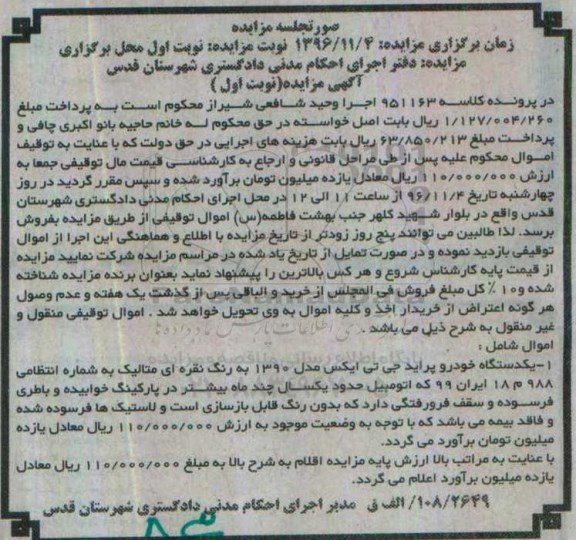 صورتجلسه مزایده
زمان برگزاری مزایده: ۱۳۹۶/۱۱/۴ نوبت مزایده: نوبت اول محل برگزاری
مزایده: دفتر اجرای احکام مدنی دادگستری شهرستان قدس
آگهی مزایده(نوبت اول )
در پرونده کلاسه ۹۵۱۱۶۳ اجرا وحید شافعی شیراز محکوم است به پرداخت مبلغ
۱/۱۲۷/۰۰۴/۲۶۰ ریال بابت اصل خواسته در حق محکوم له خانم حاجیه بانو اکبری چافی و
پرداخت مبلغ ۶۳/۸۵۰/۲۱۳ ریال بابت هزینه های اجرایی در حق دولت که با عنایت به توقیف
اموال محکوم علیه پس از طی مراحل قانونی و ارجاع به کارشناسی قیمت مال توقیفی جمعا به
ارزش ۱۱۰/۰۰۰/۰۰۰ ریال معادل یازده میلیون تومان برآورد شده و سپس مقرر گردید در روز
چهارشنبه تاریخ ۹۶/۱۱/۴ از ساعت ۱۱ الی ۱۲ در محل اجرای احکام مدنی دادگستری شهرستان
قدس واقع در بلوار شهید کلهر جنب بهشت فاطمه(س) اموال توقیفی از طریق مزایده بفروش
برسد. لذا طالبین می توانند پنج روز زودتر از تاریخ مزایده با اطلاع و هماهنگی این اجرا از اموال
توقیفی بازدید نموده و در صورت تمایل از تاریخ یاد شده در مراسم مزایده شرکت نمایید مزایده
از قیمت پایه کارشناس شروع و هر کس بالاترین را پیشنهاد نماید بعنوان برنده مزایده شناخته
شده و۱۰ ٪ کل مبلغ فروش فی المجلس از خرید و الباقی پس از گذشت یک هفته و عدم وصول
هر گونه اعتراض از خریدار اخذ و کلیه اموال به وی تحویل خواهد شد . اموال توقیفی منقول و
غیر منقول به شرح ذیل می باشد .
اموال شامل :
۱-یکدستگاه خودرو پراید جی تی ایکس مدل ۱۳۹۰ به رنگ نقره ای متالیک به شماره انتظامی
۹۸۸ م ۱۸ ایران ۹۹ که اتومبیل حدود یکسال چند ماه بیشتر در پارکینگ خوابیده و باطری
فرسوده و سقف فرورفتگی دارد که بدون رنگ قابل بازسازی است و لاستیک ها فرسوده شده
و فاقد بیمه می باشد که با توجه به وضعیت موجود به ارزش ۱۱۰/۰۰۰/۰۰۰ ریال معادل یازده
میلیون تومان برآورد می گردد.
با عنایت به مراتب بالا ارزش پایه مزایده اقلام به شرح بالا به مبلغ ۱۱۰/۰۰۰/۰۰۰ ریال معادل
یازده میلیون برآورد اعلام می گردد.
۱۰۸/۲۶۴۹/ الف ق مدیر اجرای احکام مدنی دادگستری شهرستان قدس